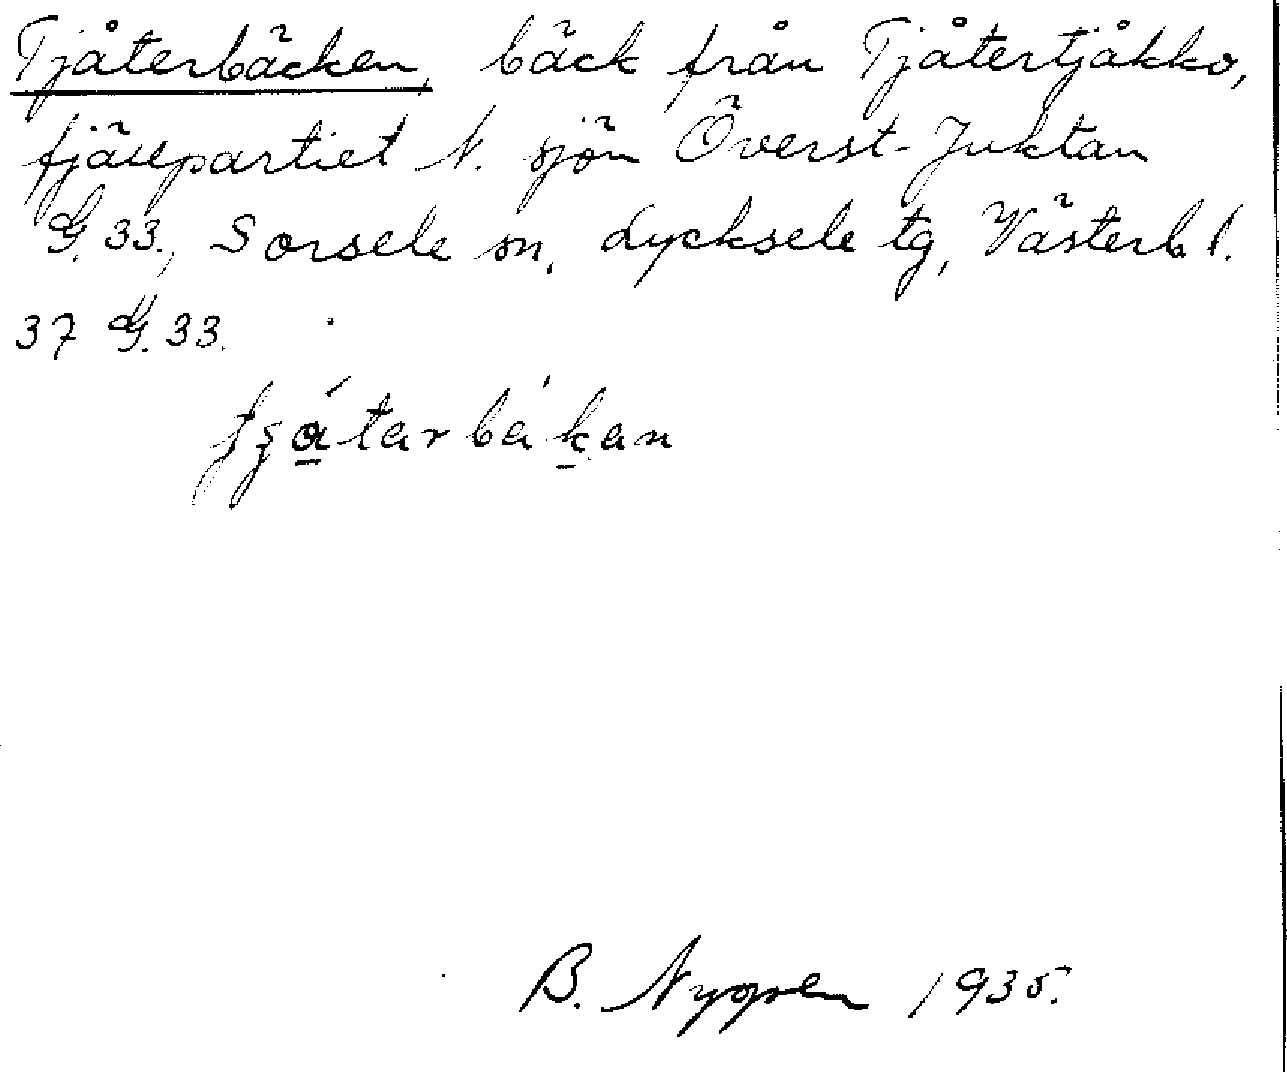 Tjåterbäcken, bäck från Tjåtertjåkko,
fjällpartiet N. sjön Överst-Juktan
G. 33., Sorsele sn, Lycksele tg, Västerb l.
37 G. 33.
B. Nygren 1935.